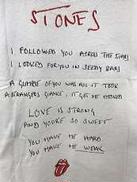 STONES
I FOLLOWED YOU ACROSS THE STARS
I LOOKED FOR YOU IN SEEDY BARS
A GLIMPSE OF YOU WAS ALL IT TOOK
A STRANGERS GLANCE IT GOT ME HOOKED
LOVE IS STRONG
AND YOU'RE SO SWEET
YOU MAKE ME HARD
YOU MAKE ME WEAK